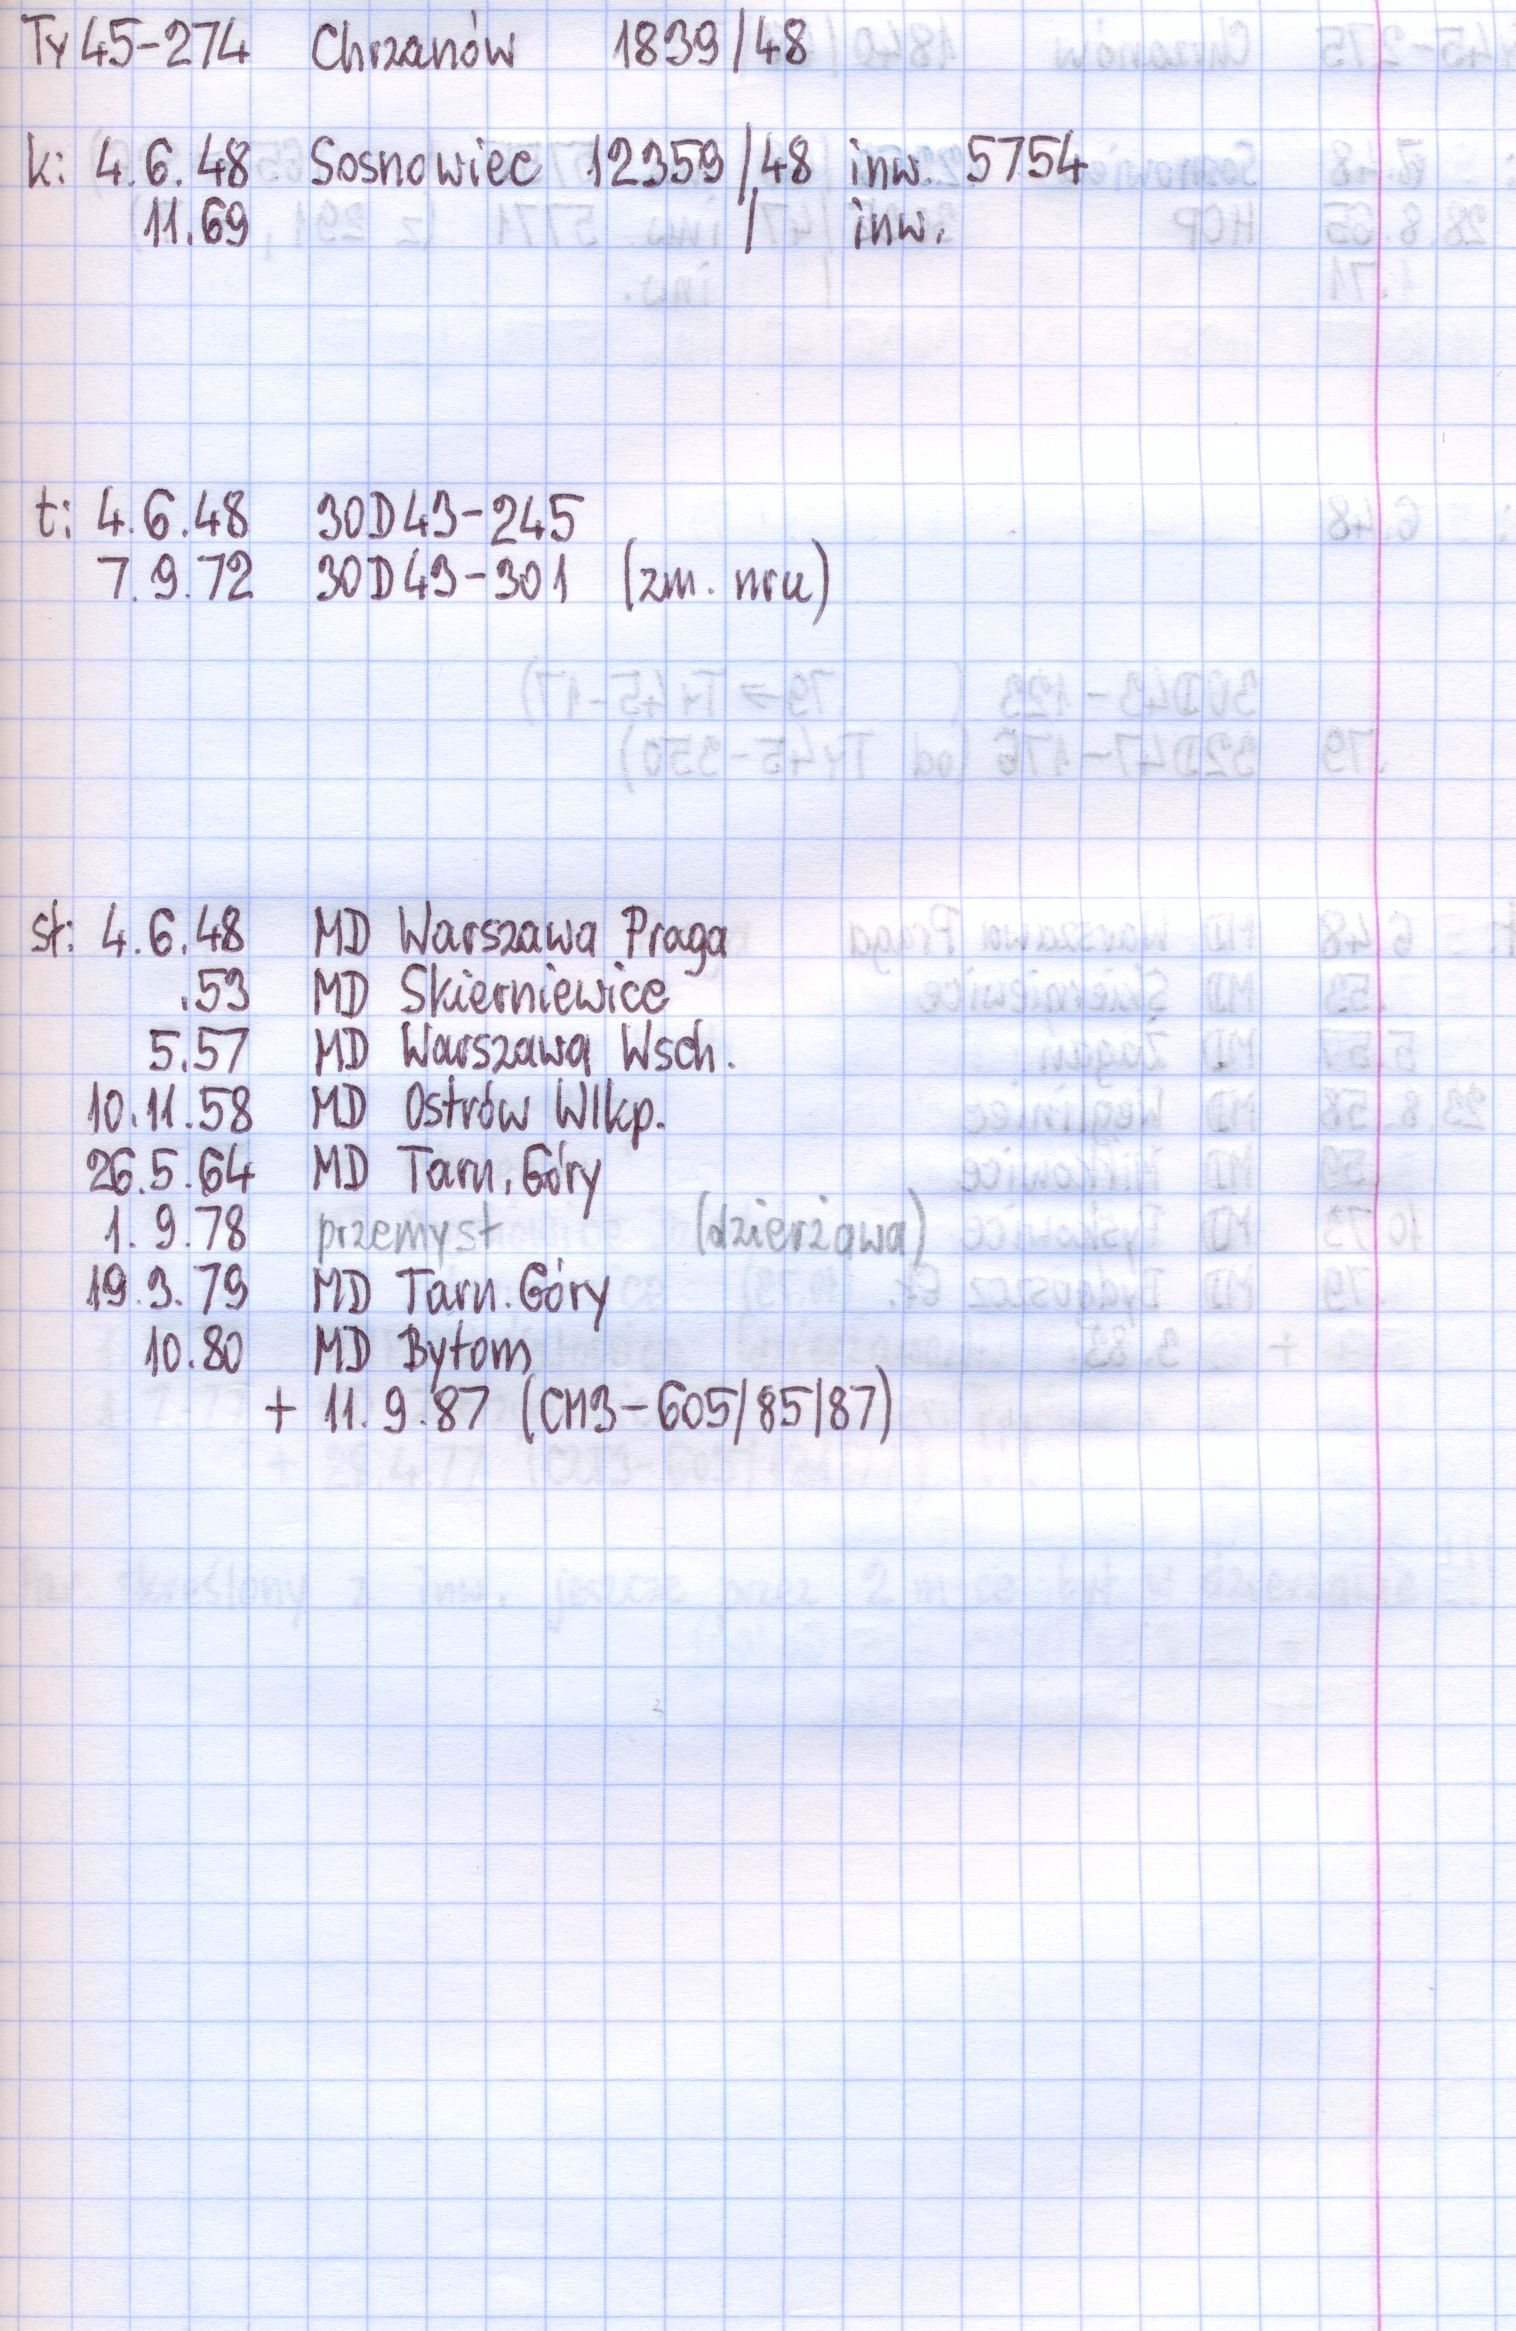 Ty45-274 Chrzanów 1839/48
k: 4.6.48 Sosnowiec 12359/48 inw. 5754
11.69 / inw.
t: 4.6.48 30D43-245
7.9.72 30D43-301 (zm. nru)
st: 4.6.48 MD Warszawa Praga
.53 MD Skierniewice
5.57 MD Warszawa Wsch.
10.11.58 MD Ostrów Wlkp.
26.5.64 MD Tarn. Góry
1.9.78 przemysł (dzierżawa)
19.3.79 MD Tarn. Góry
10.80 MD Bytom
+ 11.9.87 (CM3-605/85/87)